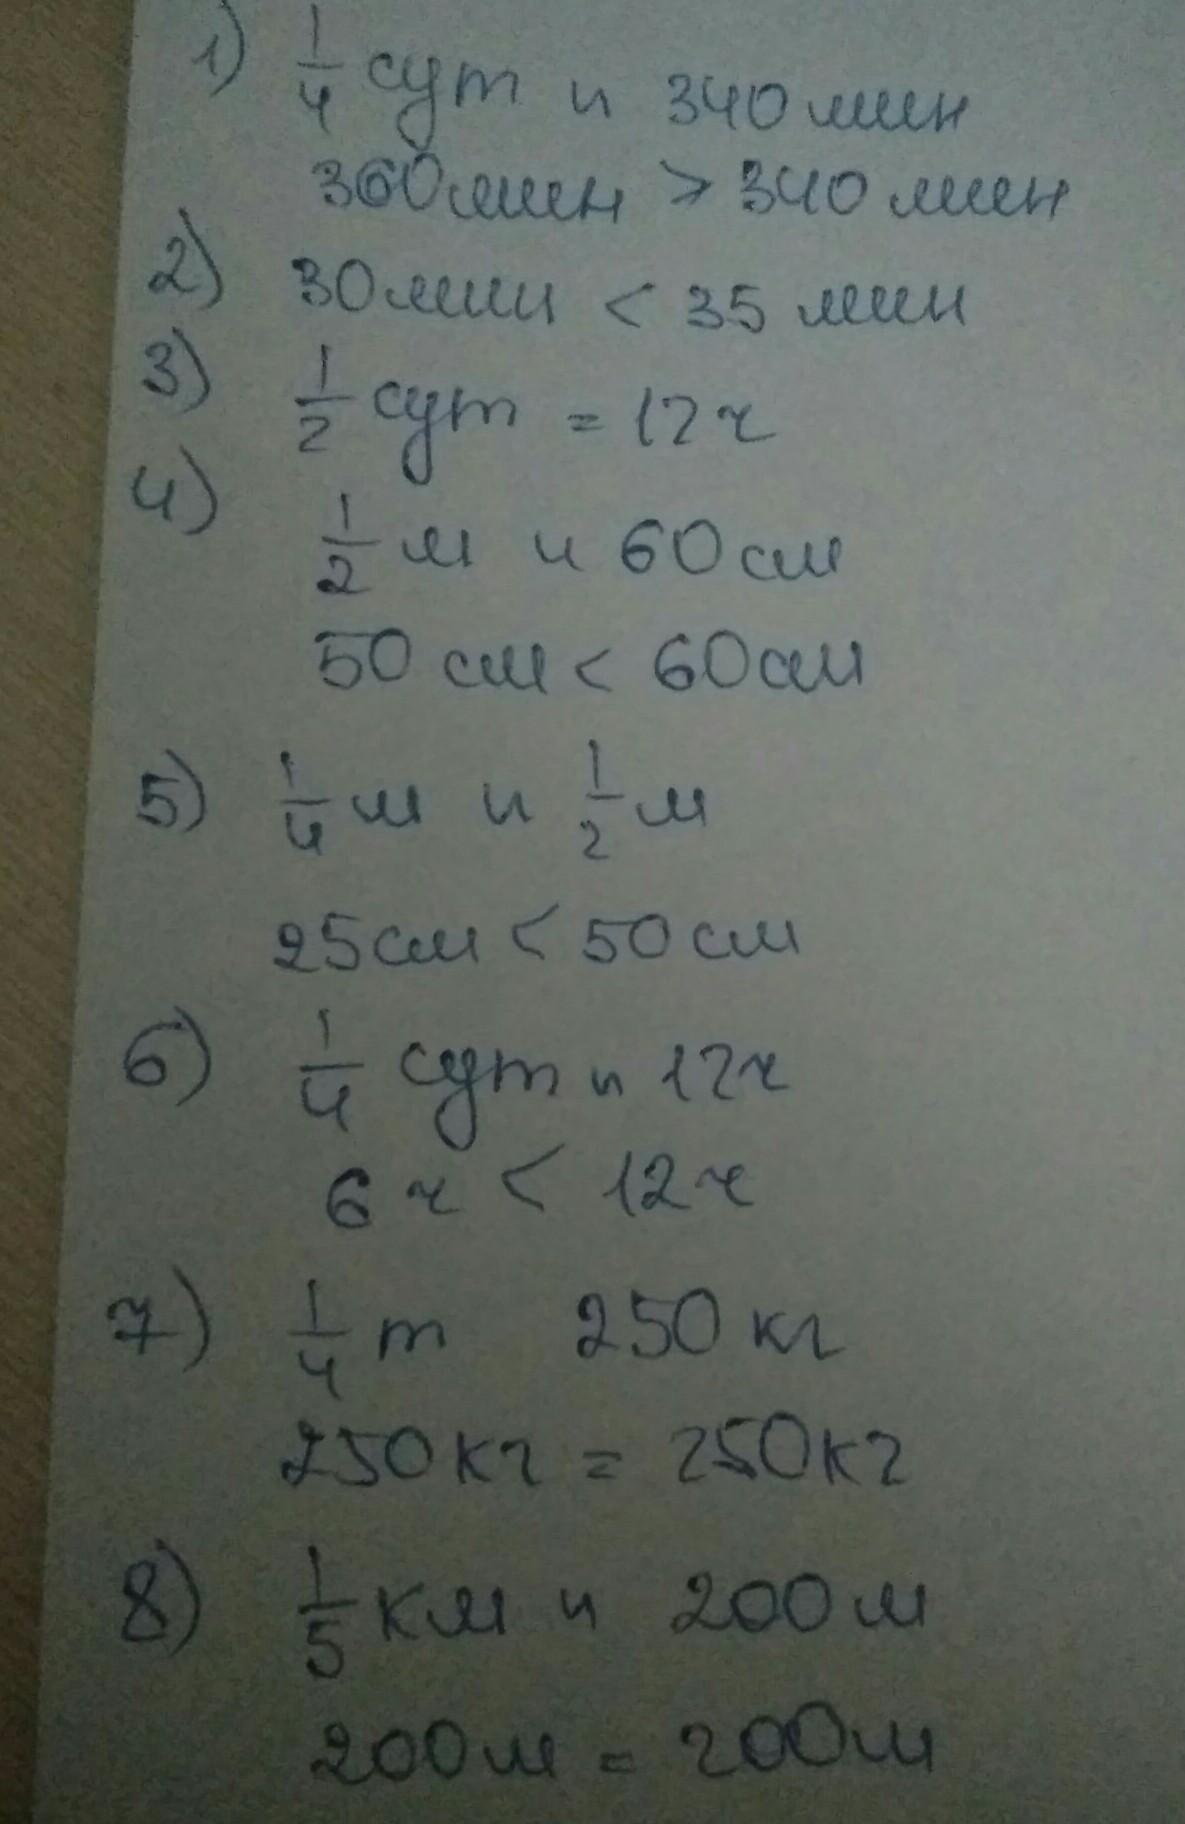 1) 1/4 сут и 340 мин
360 мин > 340 мин
2) 30 мин < 35 мин
3) 1/2 сут = 12 ч
4) 1/2 м и 60 см
50 см < 60 см
5) 1/4 м и 1/2 м
25 см < 50 см
6) 1/4 сут и 12 ч
6 ч < 12 ч
7) 1/4 т 250 кг
250 кг = 250 кг
8) 1/5 км и 200 м
200 м = 200 м